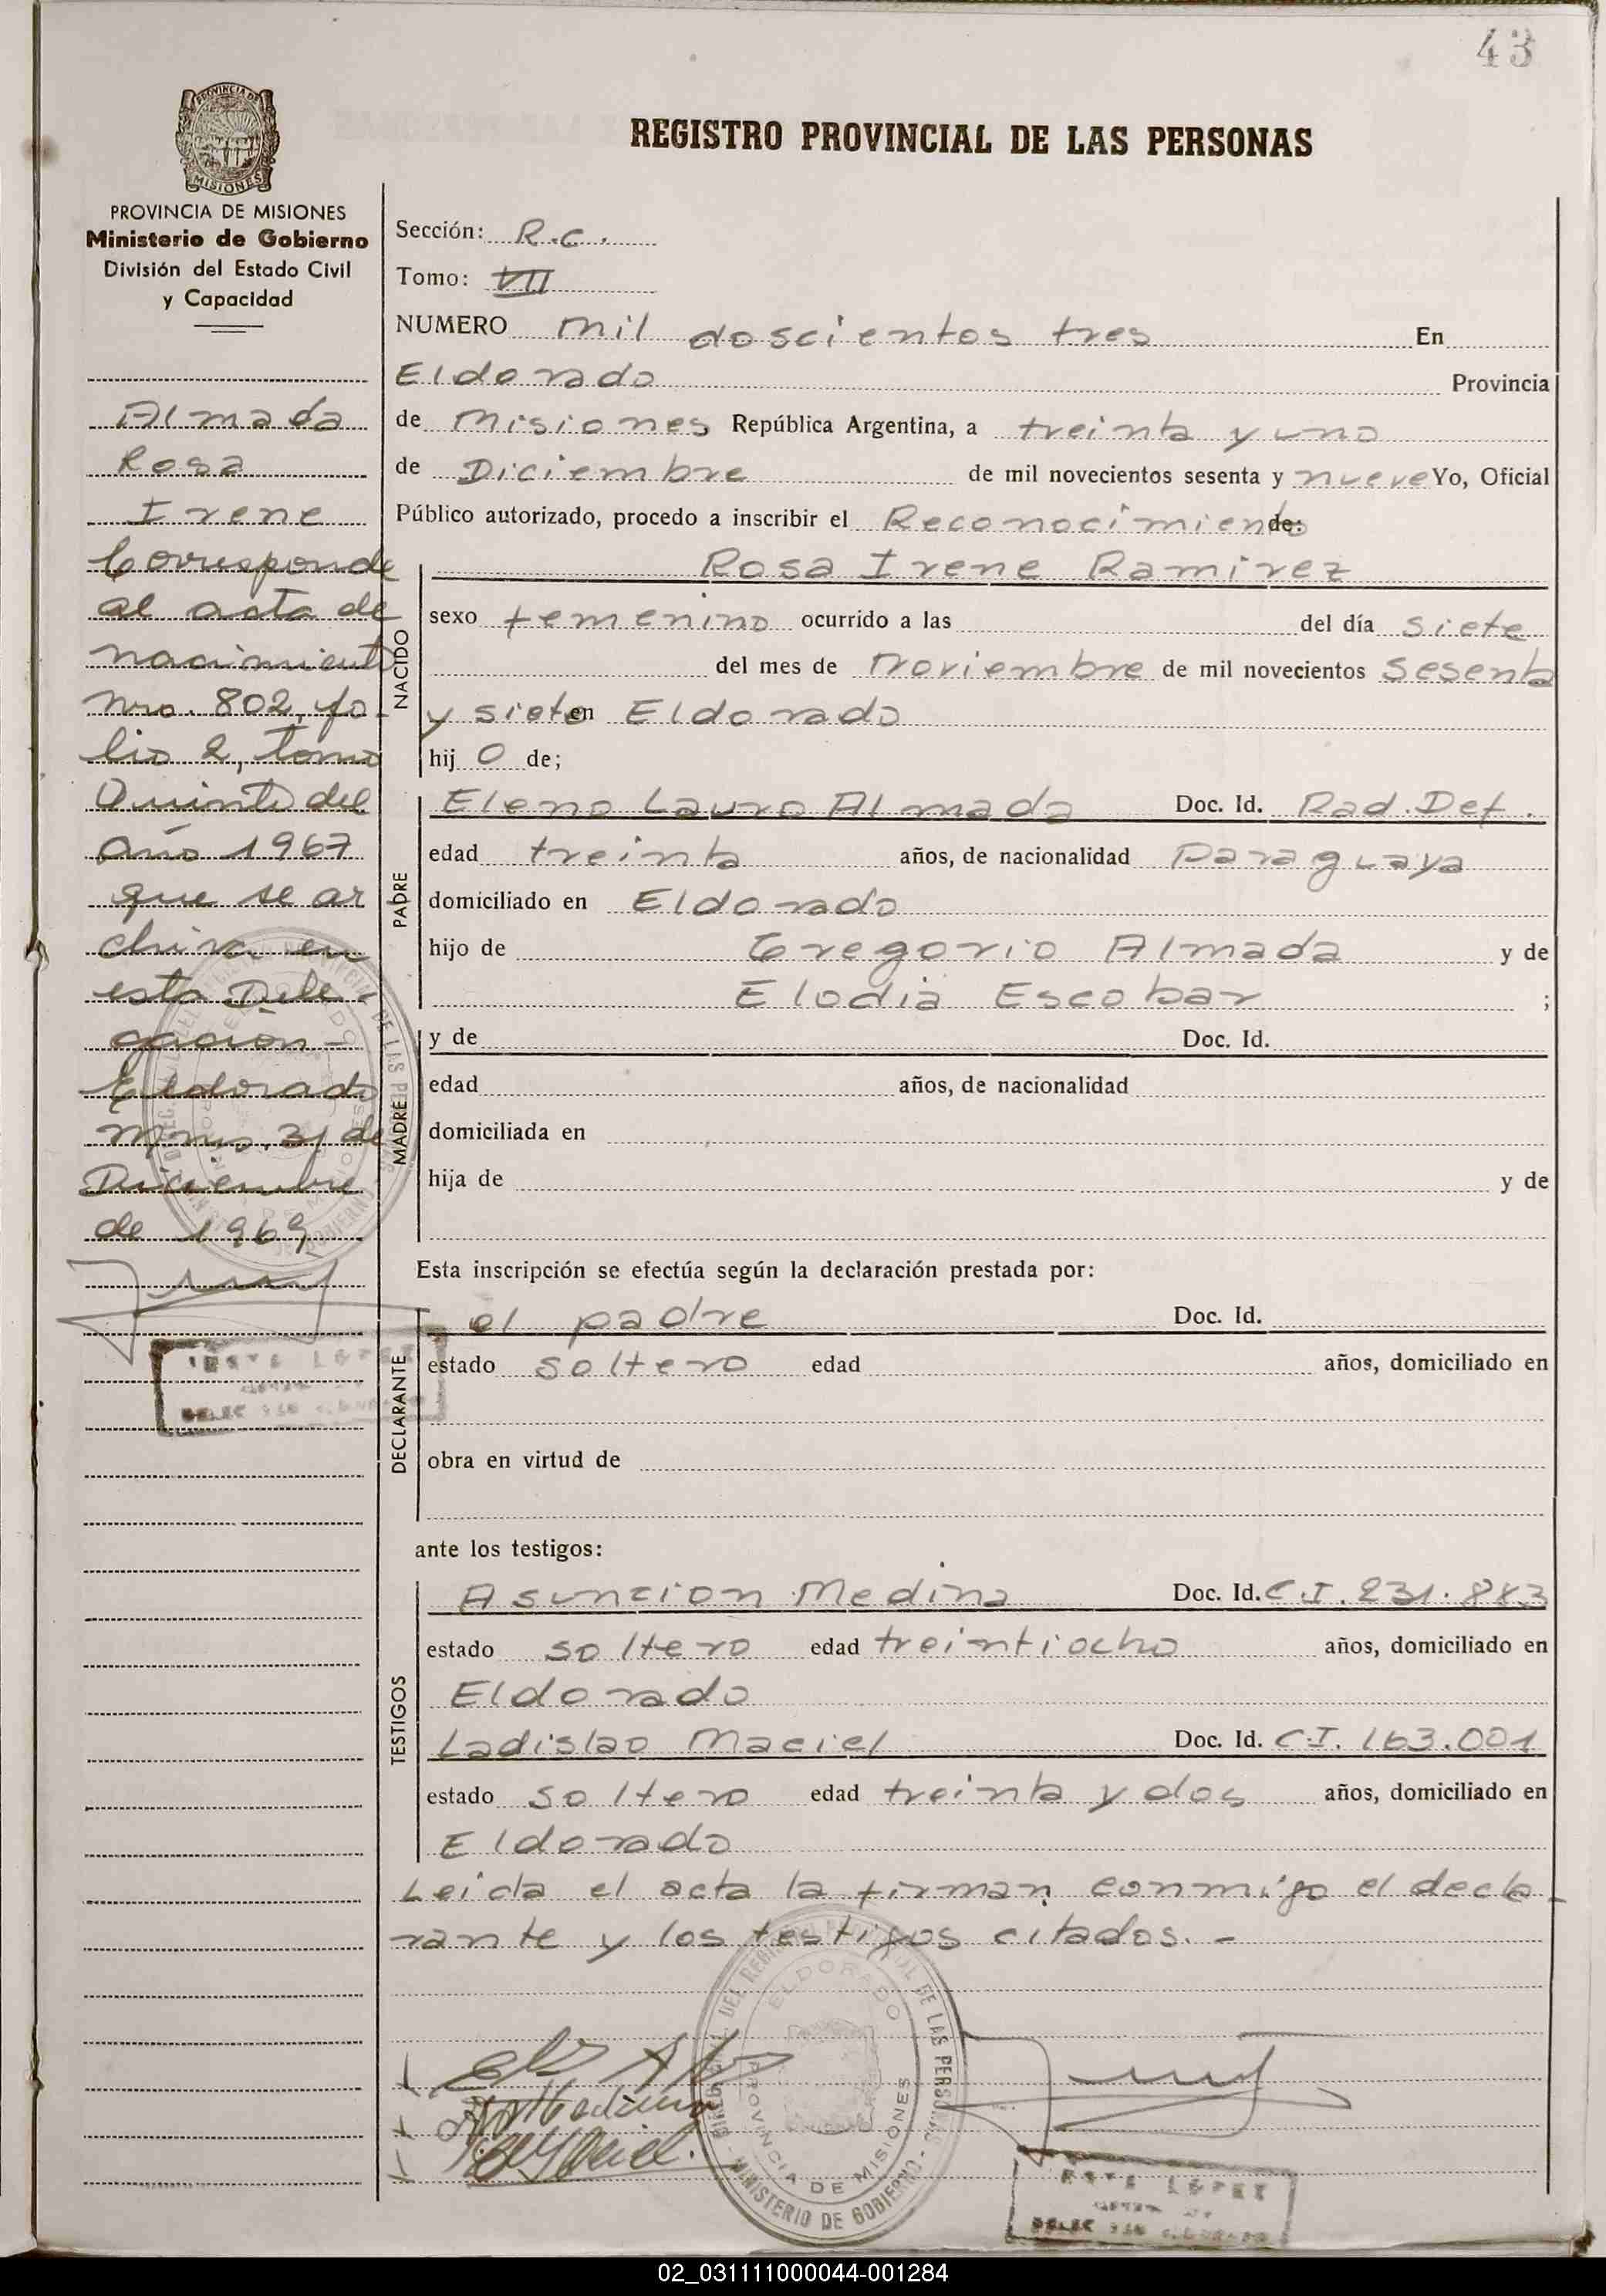 43
PROVINCIA DE
MISIONES
PROVINCIA DE MISIONES
Ministerio de Gobierno
División del Estado Civil
y Capacidad
Almada
Rosa
Irene
Corresponde
al acta de
nacimiento
Nro. 802, fo-
lio 2, tomo
Quinto del
año 1967
que se ar
chiva en
esta Dele-
gación -
Eldorado
Mnes. 31 de
Diciembre
de 1969
REGISTRO PROVINCIAL DE LAS PERSONAS
Sección: R.C.
Tomo: VII
NUMERO mil doscientos tres En
Eldorado Provincia
de Misiones República Argentina, a treinta y uno
de Diciembre de mil novecientos sesenta y nueve Yo, Oficial
Público autorizado, procedo a inscribir el Reconocimiento de:
Rosa Irene Ramirez
NACIDO
sexo femenino ocurrido a las del día siete
del mes de noviembre de mil novecientos sesenta
y siete en Eldorado
hij o de;
PADRE
Eleno Lauro Almada Doc. Id. Rad. Def.
edad treinta años, de nacionalidad paraguaya
domiciliado en Eldorado
hijo de Gregorio Almada y de
Elodia Escobar ;
MADRE
y de Doc. Id.
edad años, de nacionalidad
domiciliada en
hija de y de
Esta inscripción se efectúa según la declaración prestada por:
DECLARANTE
el padre Doc. Id.
estado soltero edad años, domiciliado en
obra en virtud de
ante los testigos:
TESTIGOS
Asuncion Medina Doc. Id. C.I. 231.883
estado soltero edad treintiocho años, domiciliado en
Eldorado
Ladislao Maciel Doc. Id. C.I. 163.001
estado soltero edad treinta y dos años, domiciliado en
Eldorado
Leida el acta la firman conmigo el decla-
rante y los testigos citados. -
ELDORADO
PROVINCIA DE MISIONES
MINISTERIO DE GOBIERNO
02_031111000044-001284